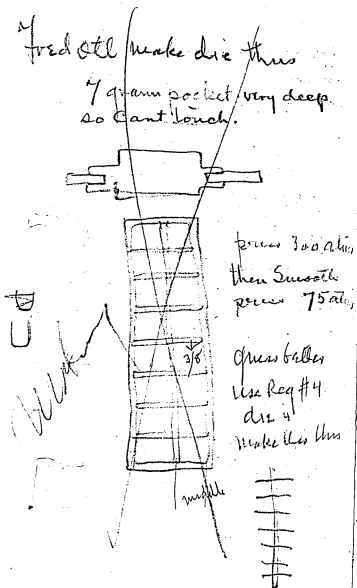 Fred Ott make die thus
7 gram pocket very deep
so Cant touch.
press 300 atms
then Smooth
press 75 atms
3/8
Guess better
use Reg #4
die &
make this thus